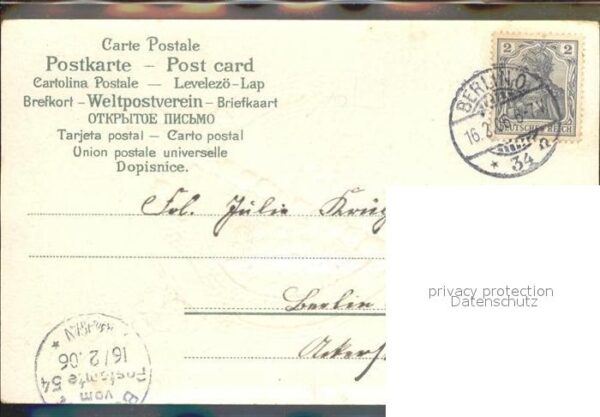 Carte Postale
Postkarte – Post card
Cartolina Postale – Levelező-Lap
Brefkort – Weltpostverein – Briefkaart
ОТКРЫТОЕ ПИСЬМО
Tarjeta postal – Carto postal
Union postale universelle
Dopisnice.
2
DEUTSCHES REICH
BERLIN O
16.2.06
* 34 n
Frl. Julie Krüg
Berlin
Ackers
privacy protection
Datenschutz
16/2.06
Postamte 34
vom